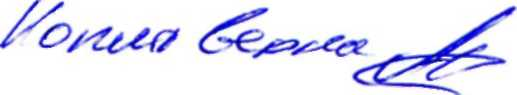 Копия верна